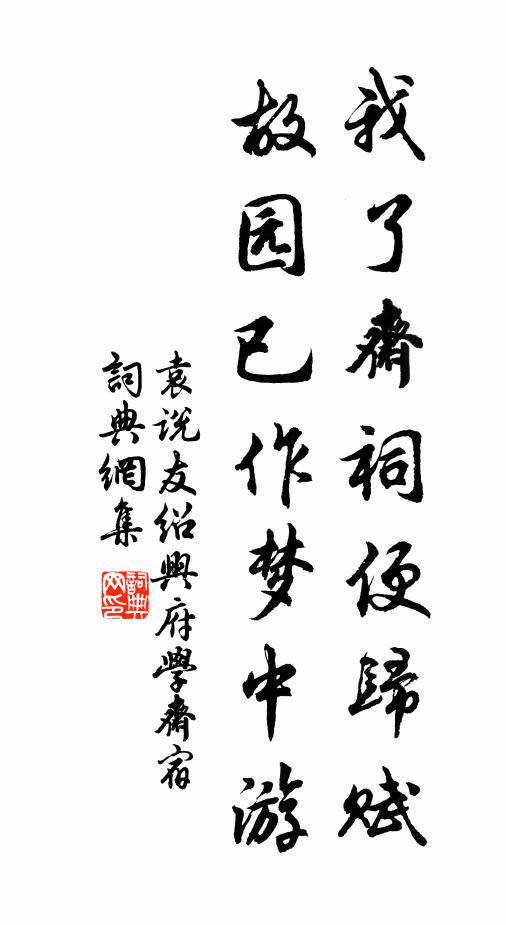 我了齋祠便歸赋
故园已作梦中游
袁说友绍興府学齋宿
詞典網集
詞典网印